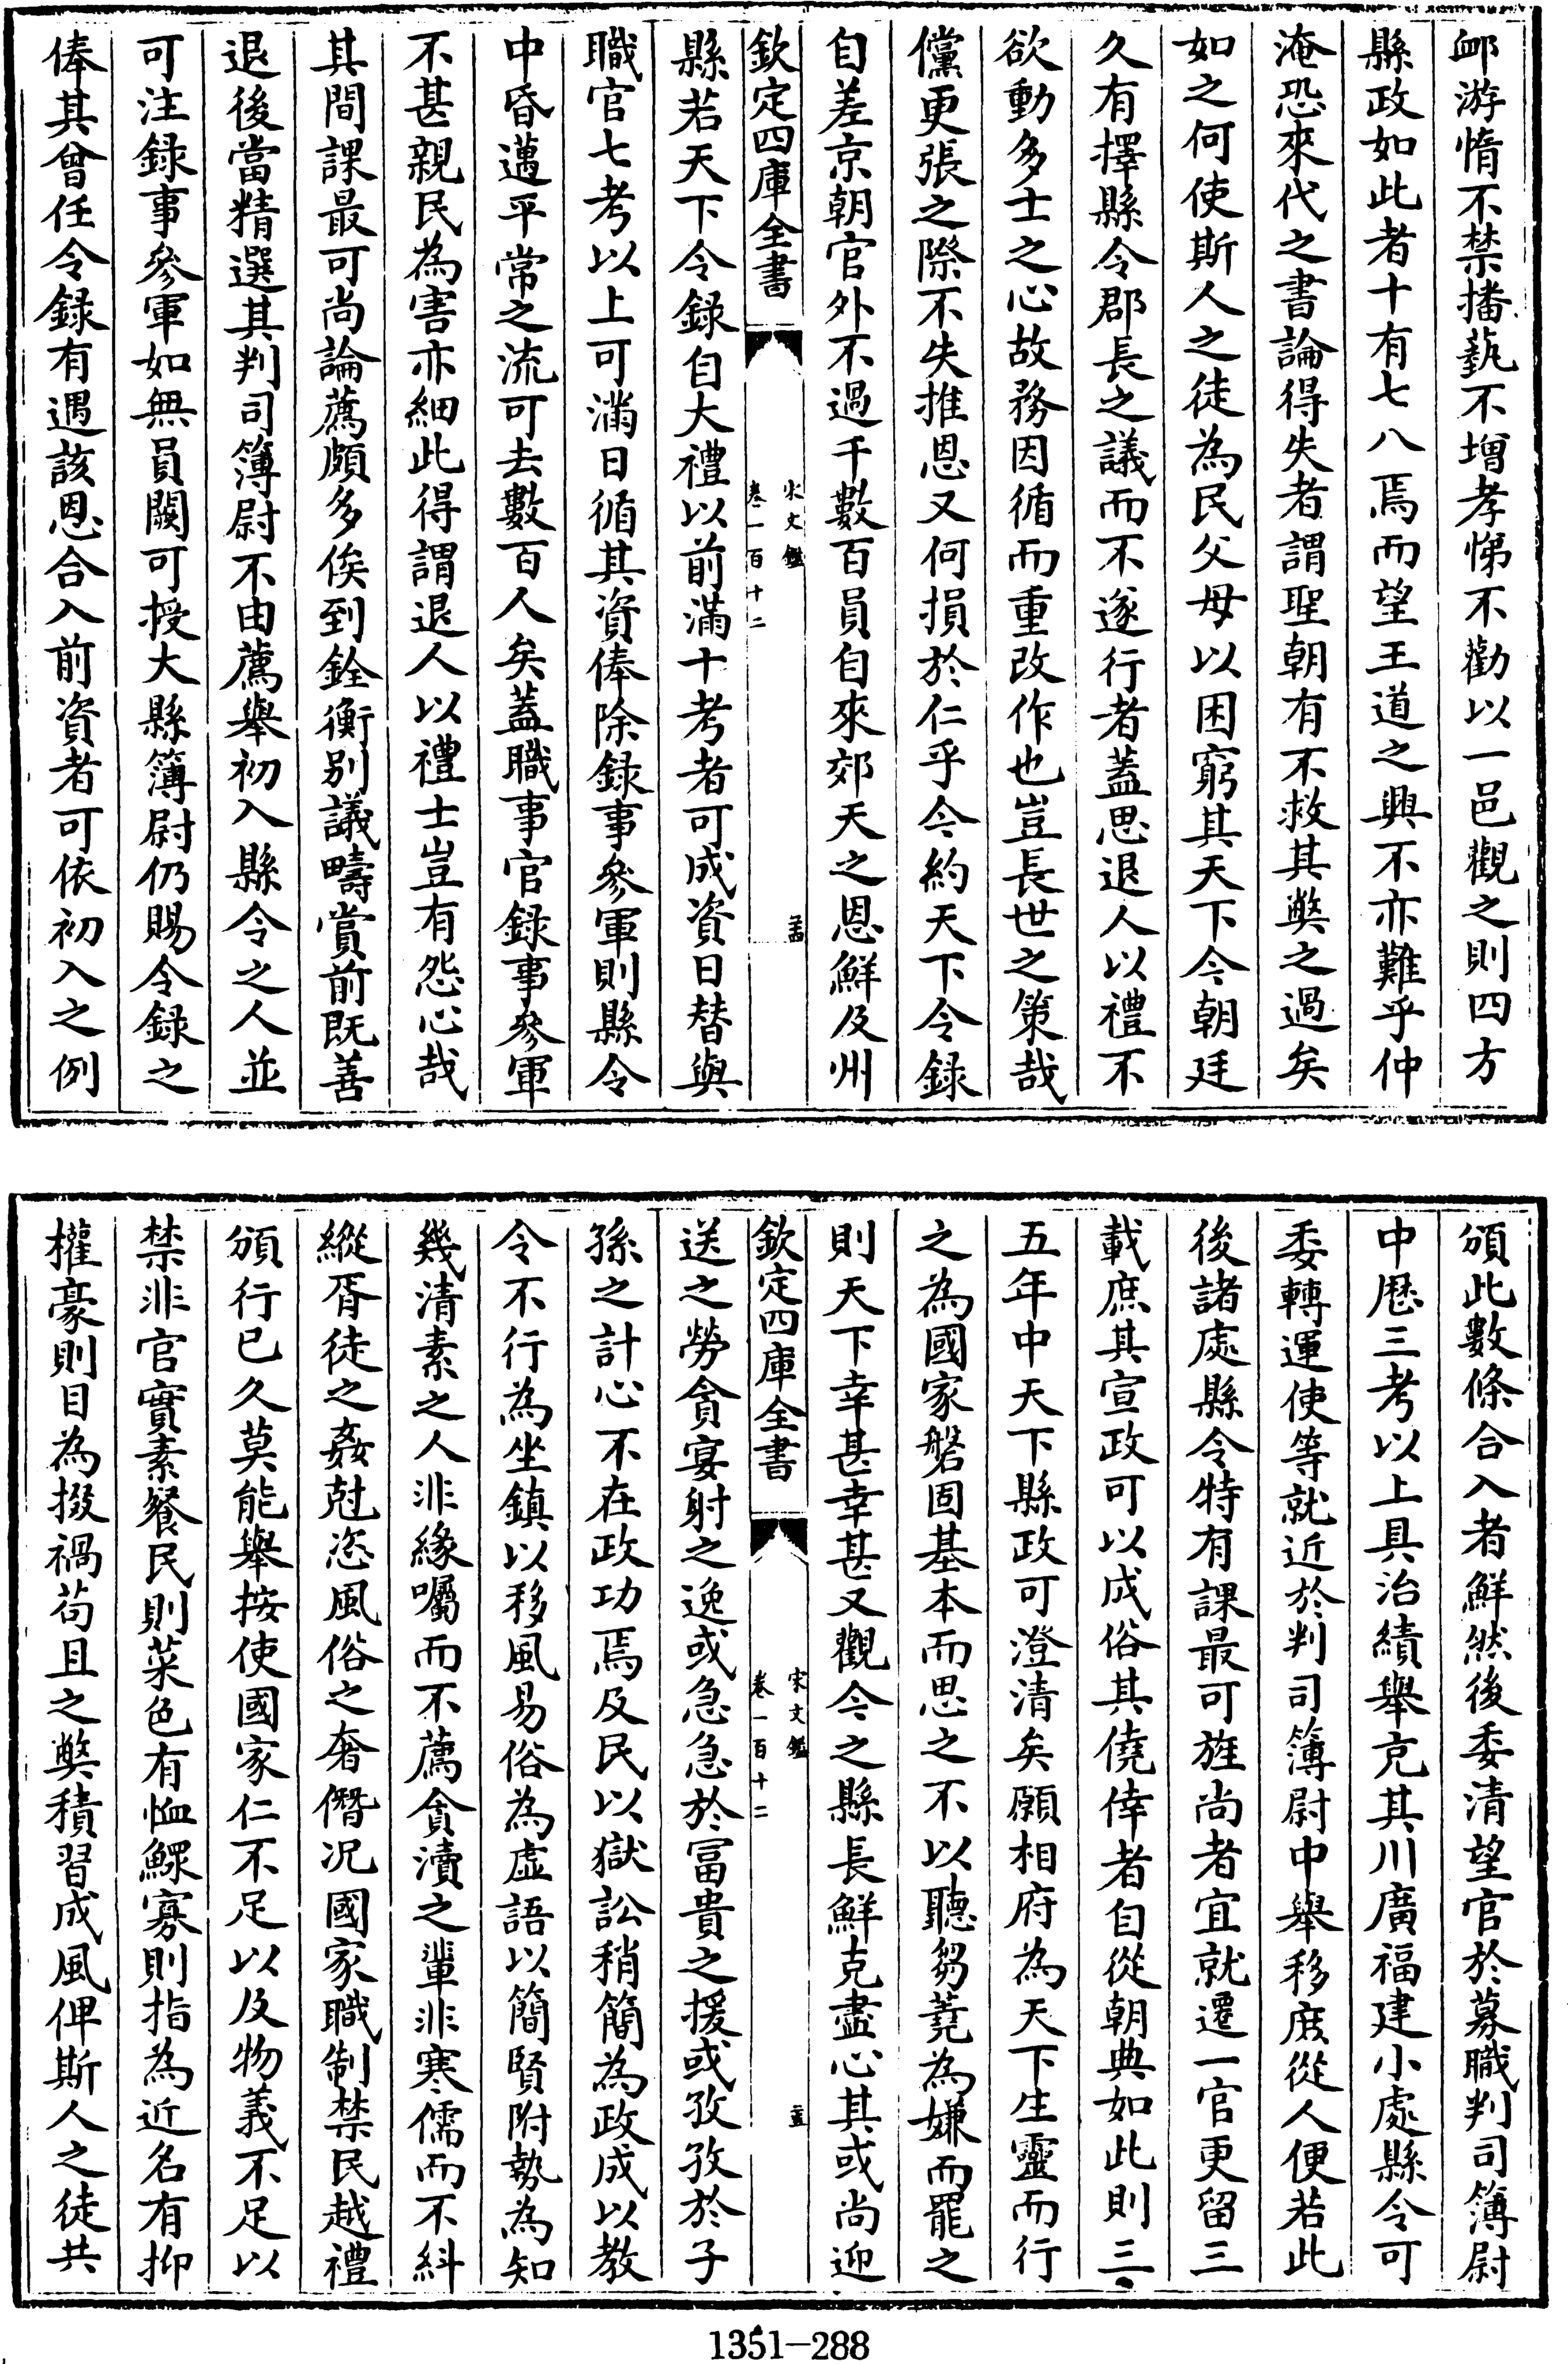 䘏游惰不禁播蓺不增孝悌不勸以一邑觀之則四方
縣政如此者十有七八焉而望王道之興不亦難乎仲
淹恐來代之書論得失者謂聖朝有不救其弊之過矣
如之何使斯人之徒為民父母以困窮其天下今朝廷
久有擇縣令郡長之議而不遂行者蓋思退人以禮不
欲動多士之心故務因循而重改作也豈長世之策哉
儻更張之際不失推恩又何損於仁乎今約天下令録
自差京朝官外不過千數百員自來郊天之恩鮮及州
欽定四庫全書
宋文鑑
卷一百十二
縣若天下令録自大禮以前滿十考者可成資日替與
職官七考以上可滿日循其資俸除録事參軍則縣令
中昏邁平常之流可去數百人矣蓋職事官録事參軍
不甚親民為害亦細此得謂退人以禮士豈有怨心哉
其間課最可尚論薦頗多俟到銓衡别議疇賞前既善
退後當精選其判司簿尉不由薦舉初入縣令之人並
可注録事參軍如無員闕可授大縣簿尉仍賜令録之
俸其曾任令録有遇該恩合入前資者可依初入之例
頒此數條合入者鮮然後委清望官於募職判司簿尉
中歴三考以上具治績舉克其川廣福建小處縣令可
委轉運使等就近於判司簿尉中舉移庶從人便若此
後諸處縣令特有課最可旌尚者宜就遷一官更留三
載庶其宣政可以成俗其僥倖者自從朝典如此則三
五年中天下縣政可澄清矣願相府為天下生靈而行
之為國家磐固基本而思之不以聽芻蕘為嫌而罷之
則天下幸甚幸甚又觀今之縣長鮮克盡心其或尚迎
欽定四庫全書
宋文鑑
卷一百十二
送之勞貪宴射之逸或急急於冨貴之援或孜孜於子
孫之計心不在政功焉及民以獄訟稍簡為政成以教
令不行為坐鎮以移風易俗為虚語以簡賢附勢為知
幾清素之人非緣囑而不薦貪瀆之輩非寒儒而不糾
縱胥徒之姦尅恣風俗之奢僭况國家職制禁民越禮
頒行已久莫能舉按使國家仁不足以及物義不足以
禁非官實素餐民則菜色有恤鰥寡則指為近名有抑
權豪則目為掇禍茍且之弊積習成風俾斯人之徒共
1351-288